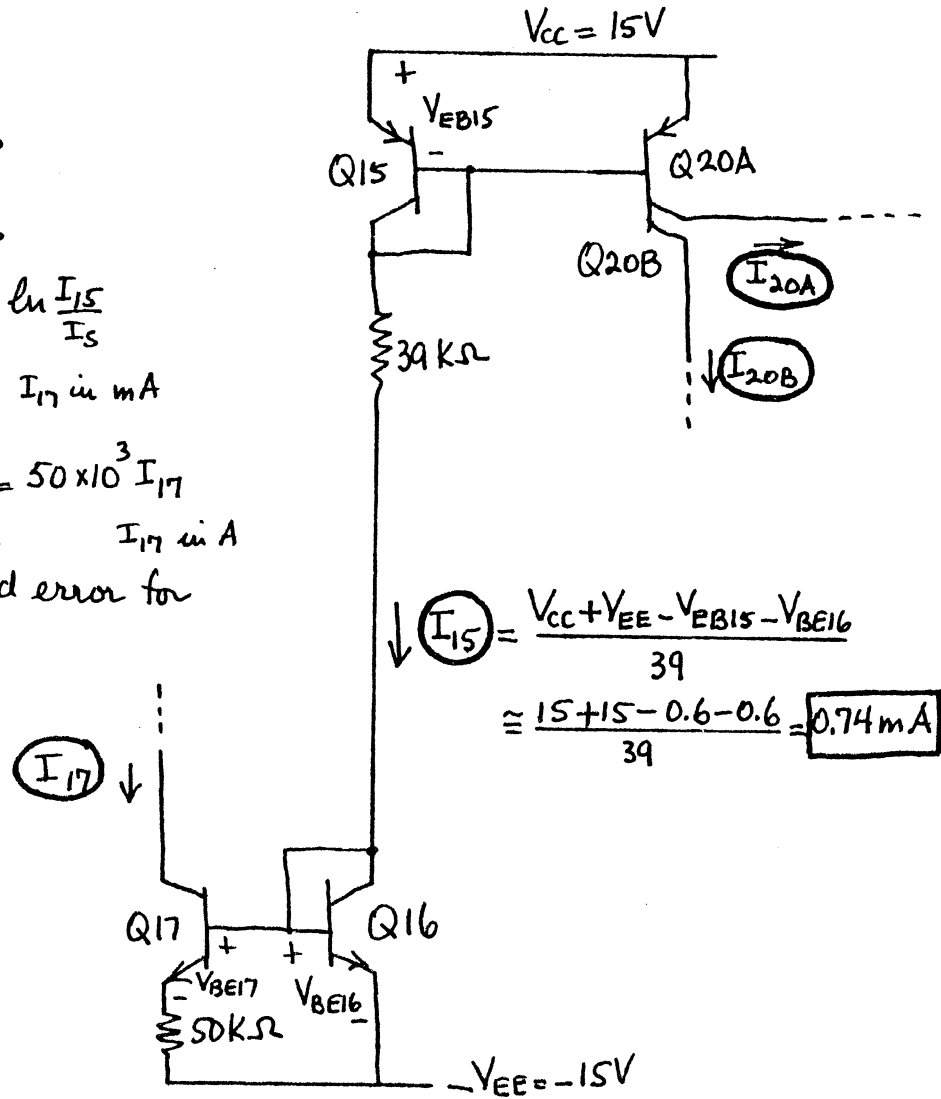 Vcc = 15V
+
VEB15
-
Q15
Q20A
Q20B
I20A
I20B
39KΩ
ln I15/IS
I17 in mA
= 50 x10^3 I17
I17 in A
d error for
I15 = (VCC + VEE - VEB15 - VBE16)/39
≅ (15+15-0.6-0.6)/39 = 0.74 mA
I17
Q17
Q16
+
+
VBE17
-
VBE16
-
50KΩ
-VEE = -15V